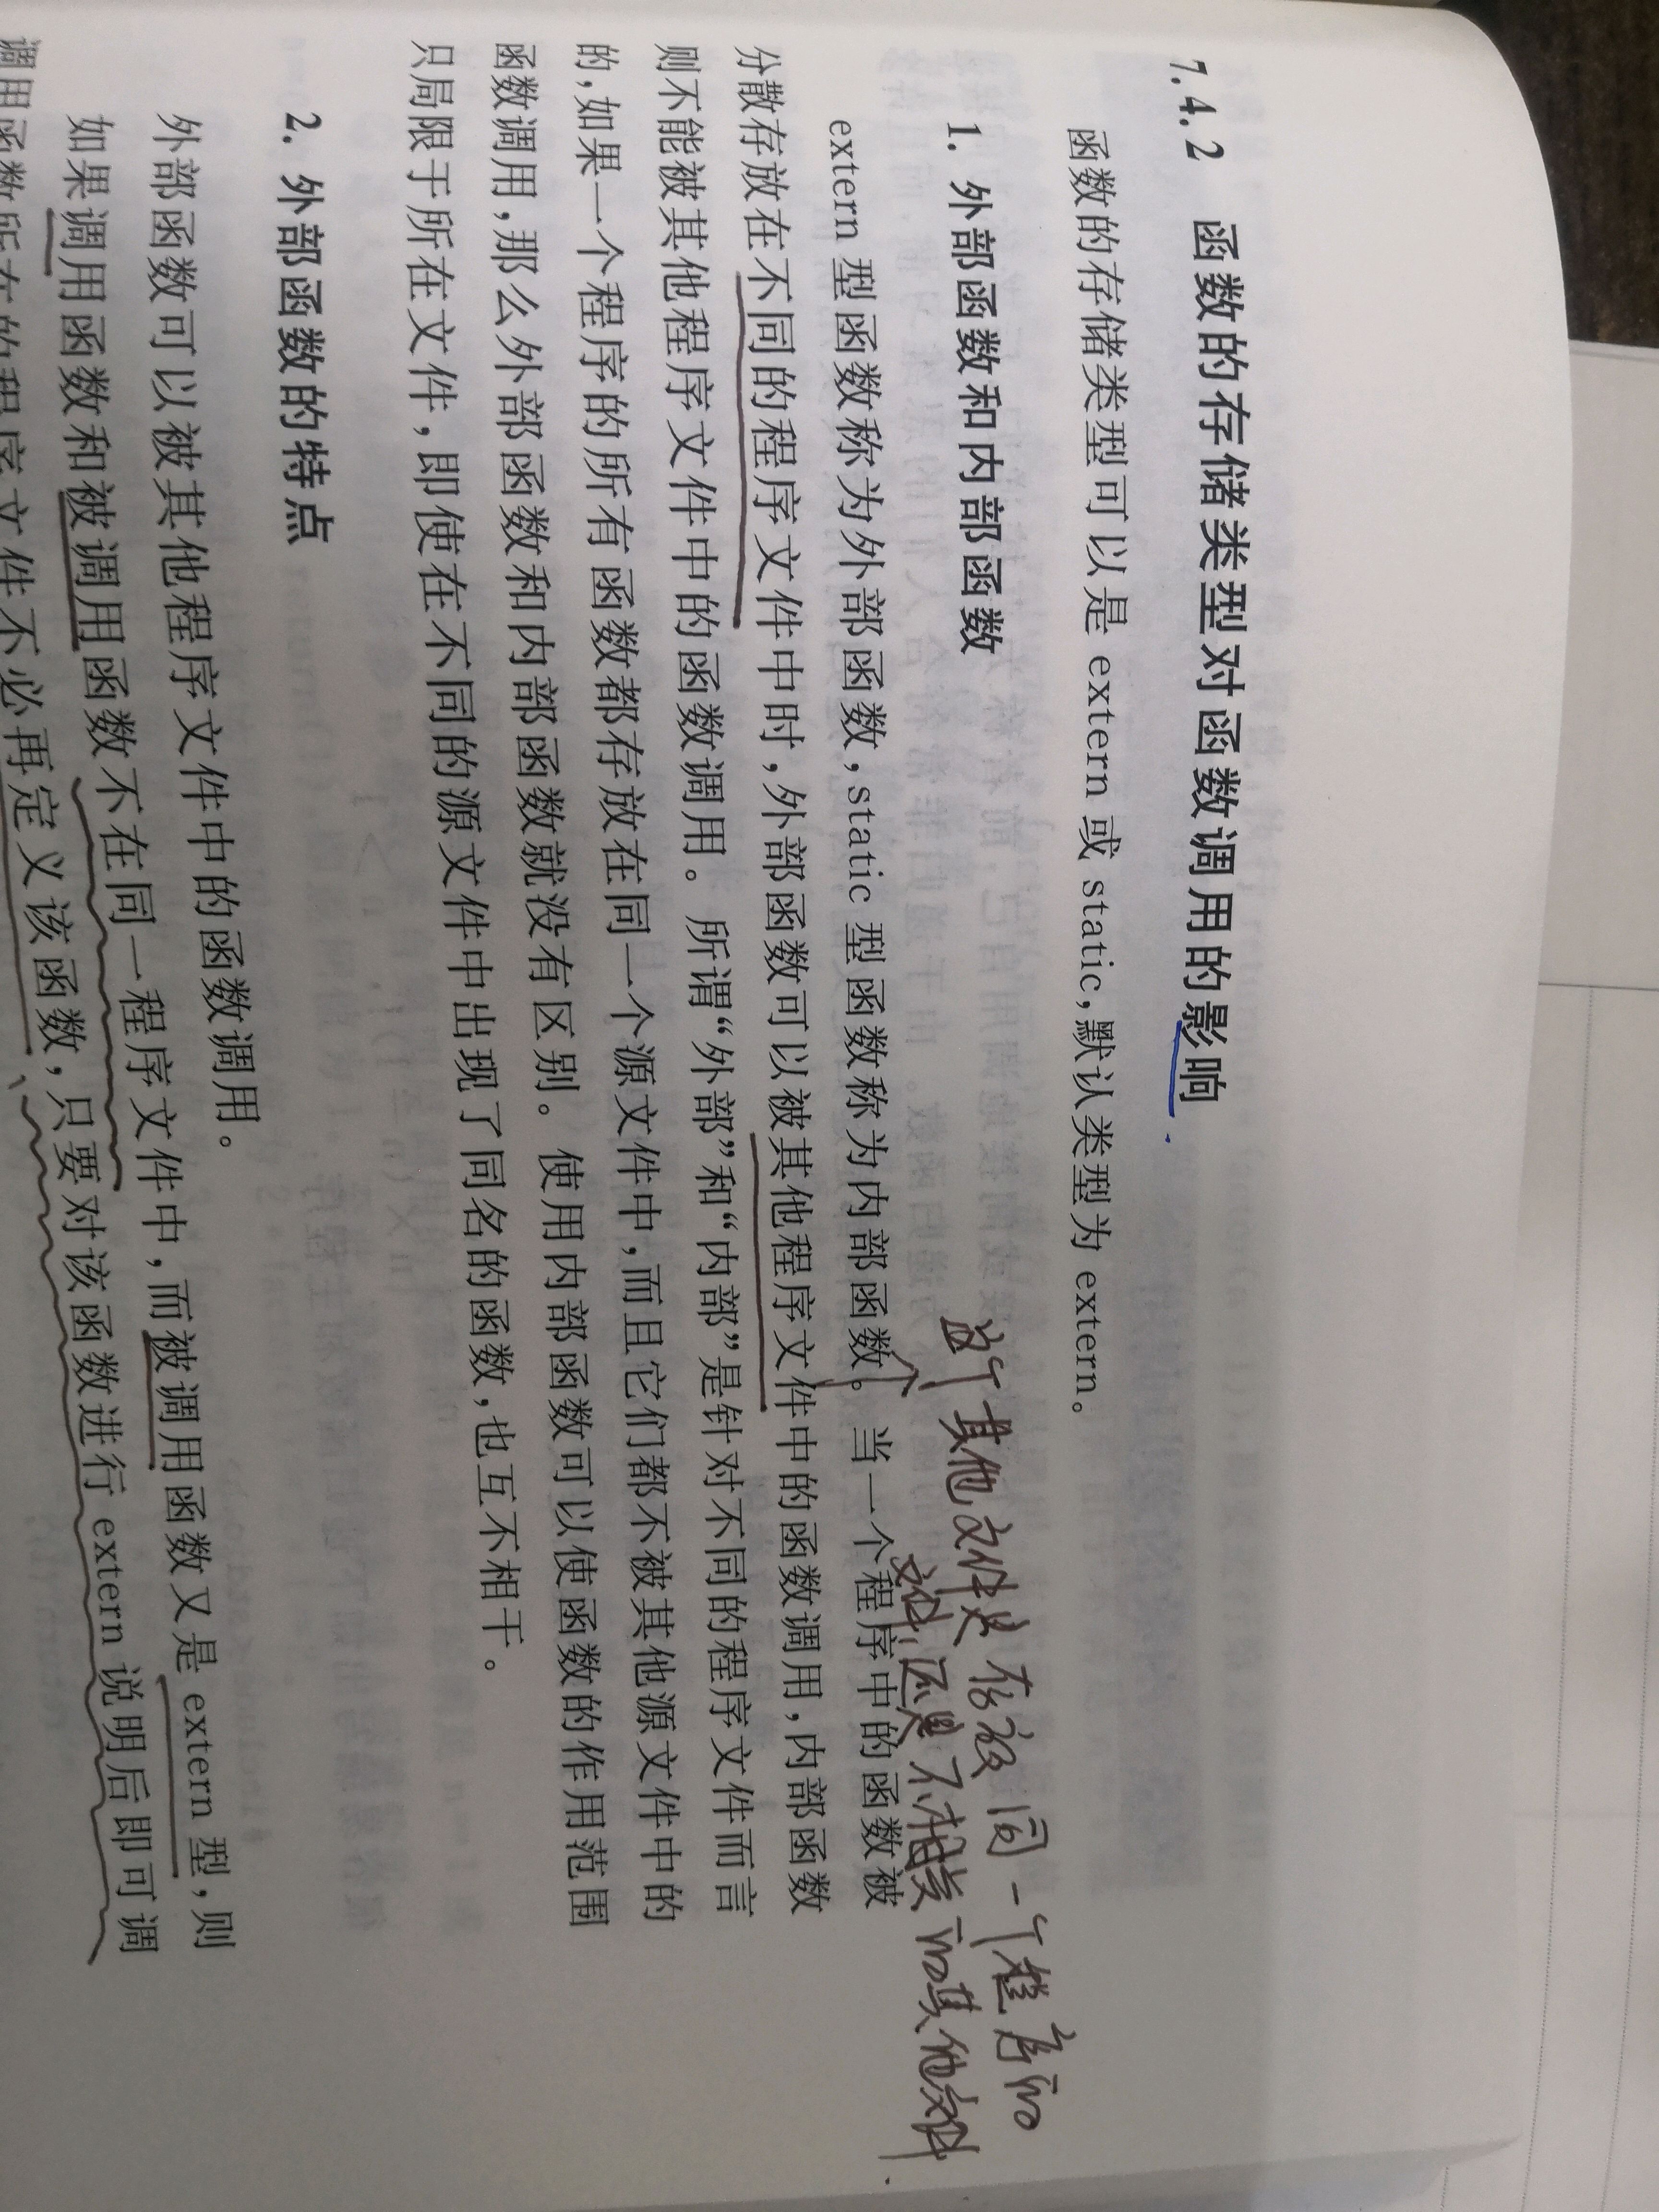 7.4.2 函数的存储类型对函数调用的影响
函数的存储类型可以是 extern 或 static,默认类型为 extern。
这个其他文件是存放同一个程序的
文件,还是不相关的其他文件
1. 外部函数和内部函数
extern 型函数称为外部函数,static 型函数称为内部函数。当一个程序中的函数被
分散存放在不同的程序文件中时,外部函数可以被其他程序文件中的函数调用,内部函数
则不能被其他程序文件中的函数调用。所谓“外部”和“内部”是针对不同的程序文件而言
的,如果一个程序的所有函数都存放在同一个源文件中,而且它们都不被其他源文件中的
函数调用,那么外部函数和内部函数就没有区别。使用内部函数可以使函数的作用范围
只局限于所在文件,即使在不同的源文件中出现了同名的函数,也互不相干。
2. 外部函数的特点
外部函数可以被其他程序文件中的函数调用。
如果调用函数和被调用函数不在同一程序文件中,而被调用函数又是 extern 型,则
调用函数所在的程序文件不必再定义该函数,只要对该函数进行 extern 说明后即可调